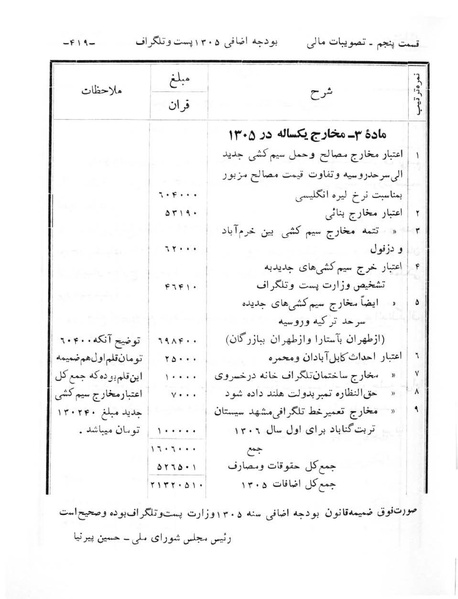 قسمت پنجم - تصویبات مالی بودجه اضافی ۱۳۰۵ پست و تلگراف -۴۱۹-
نمره ترتیب شرح مبلغ قران ملاحظات
مادۀ ۳- مخارج یکساله در ۱۳۰۵
۱ اعتبار مخارج مصالح و حمل سیم کشی جدید
الی سرحد روسیه و تفاوت قیمت مصالح مزبور
بمناسبت نرخ لیره انگلیسی ۶۰۴۰۰۰
۲ اعتبار مخارج بنائی ۵۳۱۹۰
۳ » تتمه مخارج سیم کشی بین خرم آباد
و دزفول ۶۲۰۰۰
۴ اعتبار خرج سیم کشی‌های جدید به
تشخیص وزارت پست و تلگراف ۴۶۴۱۰
۵ » ایضاً مخارج سیم کشی‌های جدیده
سرحد ترکیه و روسیه
(از طهران بآستارا و از طهران ببازرگان) ۶۹۸۴۰۰ توضیح آنکه ۶۰۴۰۰
۶ اعتبار احداث کابل آبادان و محمره ۲۵۰۰۰ تومان قلم اول هم ضمیمه
۷ » مخارج ساختمان تلگراف خانه در خسروی ۱۰۰۰۰ این قلم بوده که جمع کل
۸ » حق النظاره تمبر بدولت هلند داده شود ۷۰۰۰ اعتبار مخارج سیم کشی
۹ » مخارج تعمیر خط تلگرافی مشهد سیستان جدید مبلغ ۱۳۰۲۴۰
تربت گناباد برای اول سال ۱۳۰۶ ۱۰۰۰۰۰ تومان میباشد.
جمع ۱۶۰۶۰۰۰
جمع کل حقوقات و مصارف ۵۲۶۵۰۱
جمع کل اضافات ۱۳۰۵ ۲۱۳۲۵۰۱
صورت فوق ضمیمه قانون بودجه اضافی سنه ۱۳۰۵ وزارت پست و تلگراف بوده و صحیح است
رئیس مجلس شورای ملی - حسین پیرنیا